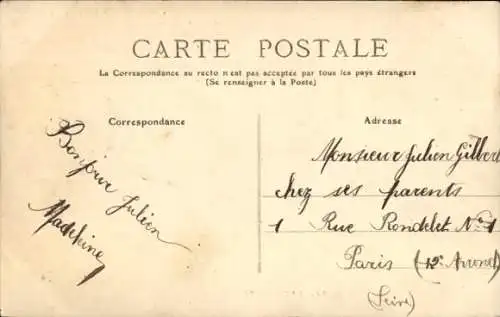 CARTE POSTALE
La Correspondance au recto n'est pas acceptée par tous les pays étrangers
(Se renseigner à la Poste)
Correspondance
Bonjour Julien
Madeleine
Adresse
Monsieur Julien Gilbert
chez ses parents
1 Rue Rondelet No 1
Paris (12e Arrond)
(Seine)